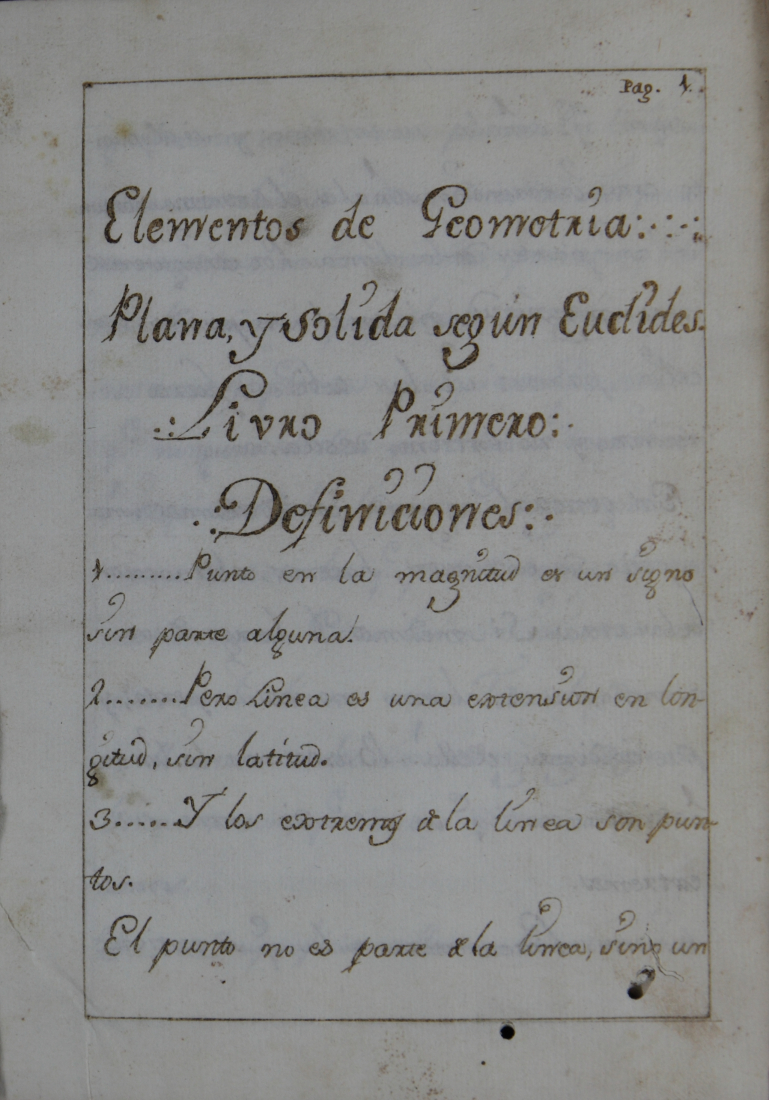 Pag. 1.
Elementos de Geometria:·:·:
Plana, y Solida según Euclides.
.:Livro Primero:.
.:Definiciones:.
1.........Punto en la magnitud es un signo
sin parte alguna.
2........Pero Linea es una extension en lon-
gitud, sin latitud.
3......Y los extremos de la linea son pun-
tos.
El punto no es parte de la linea, sino un